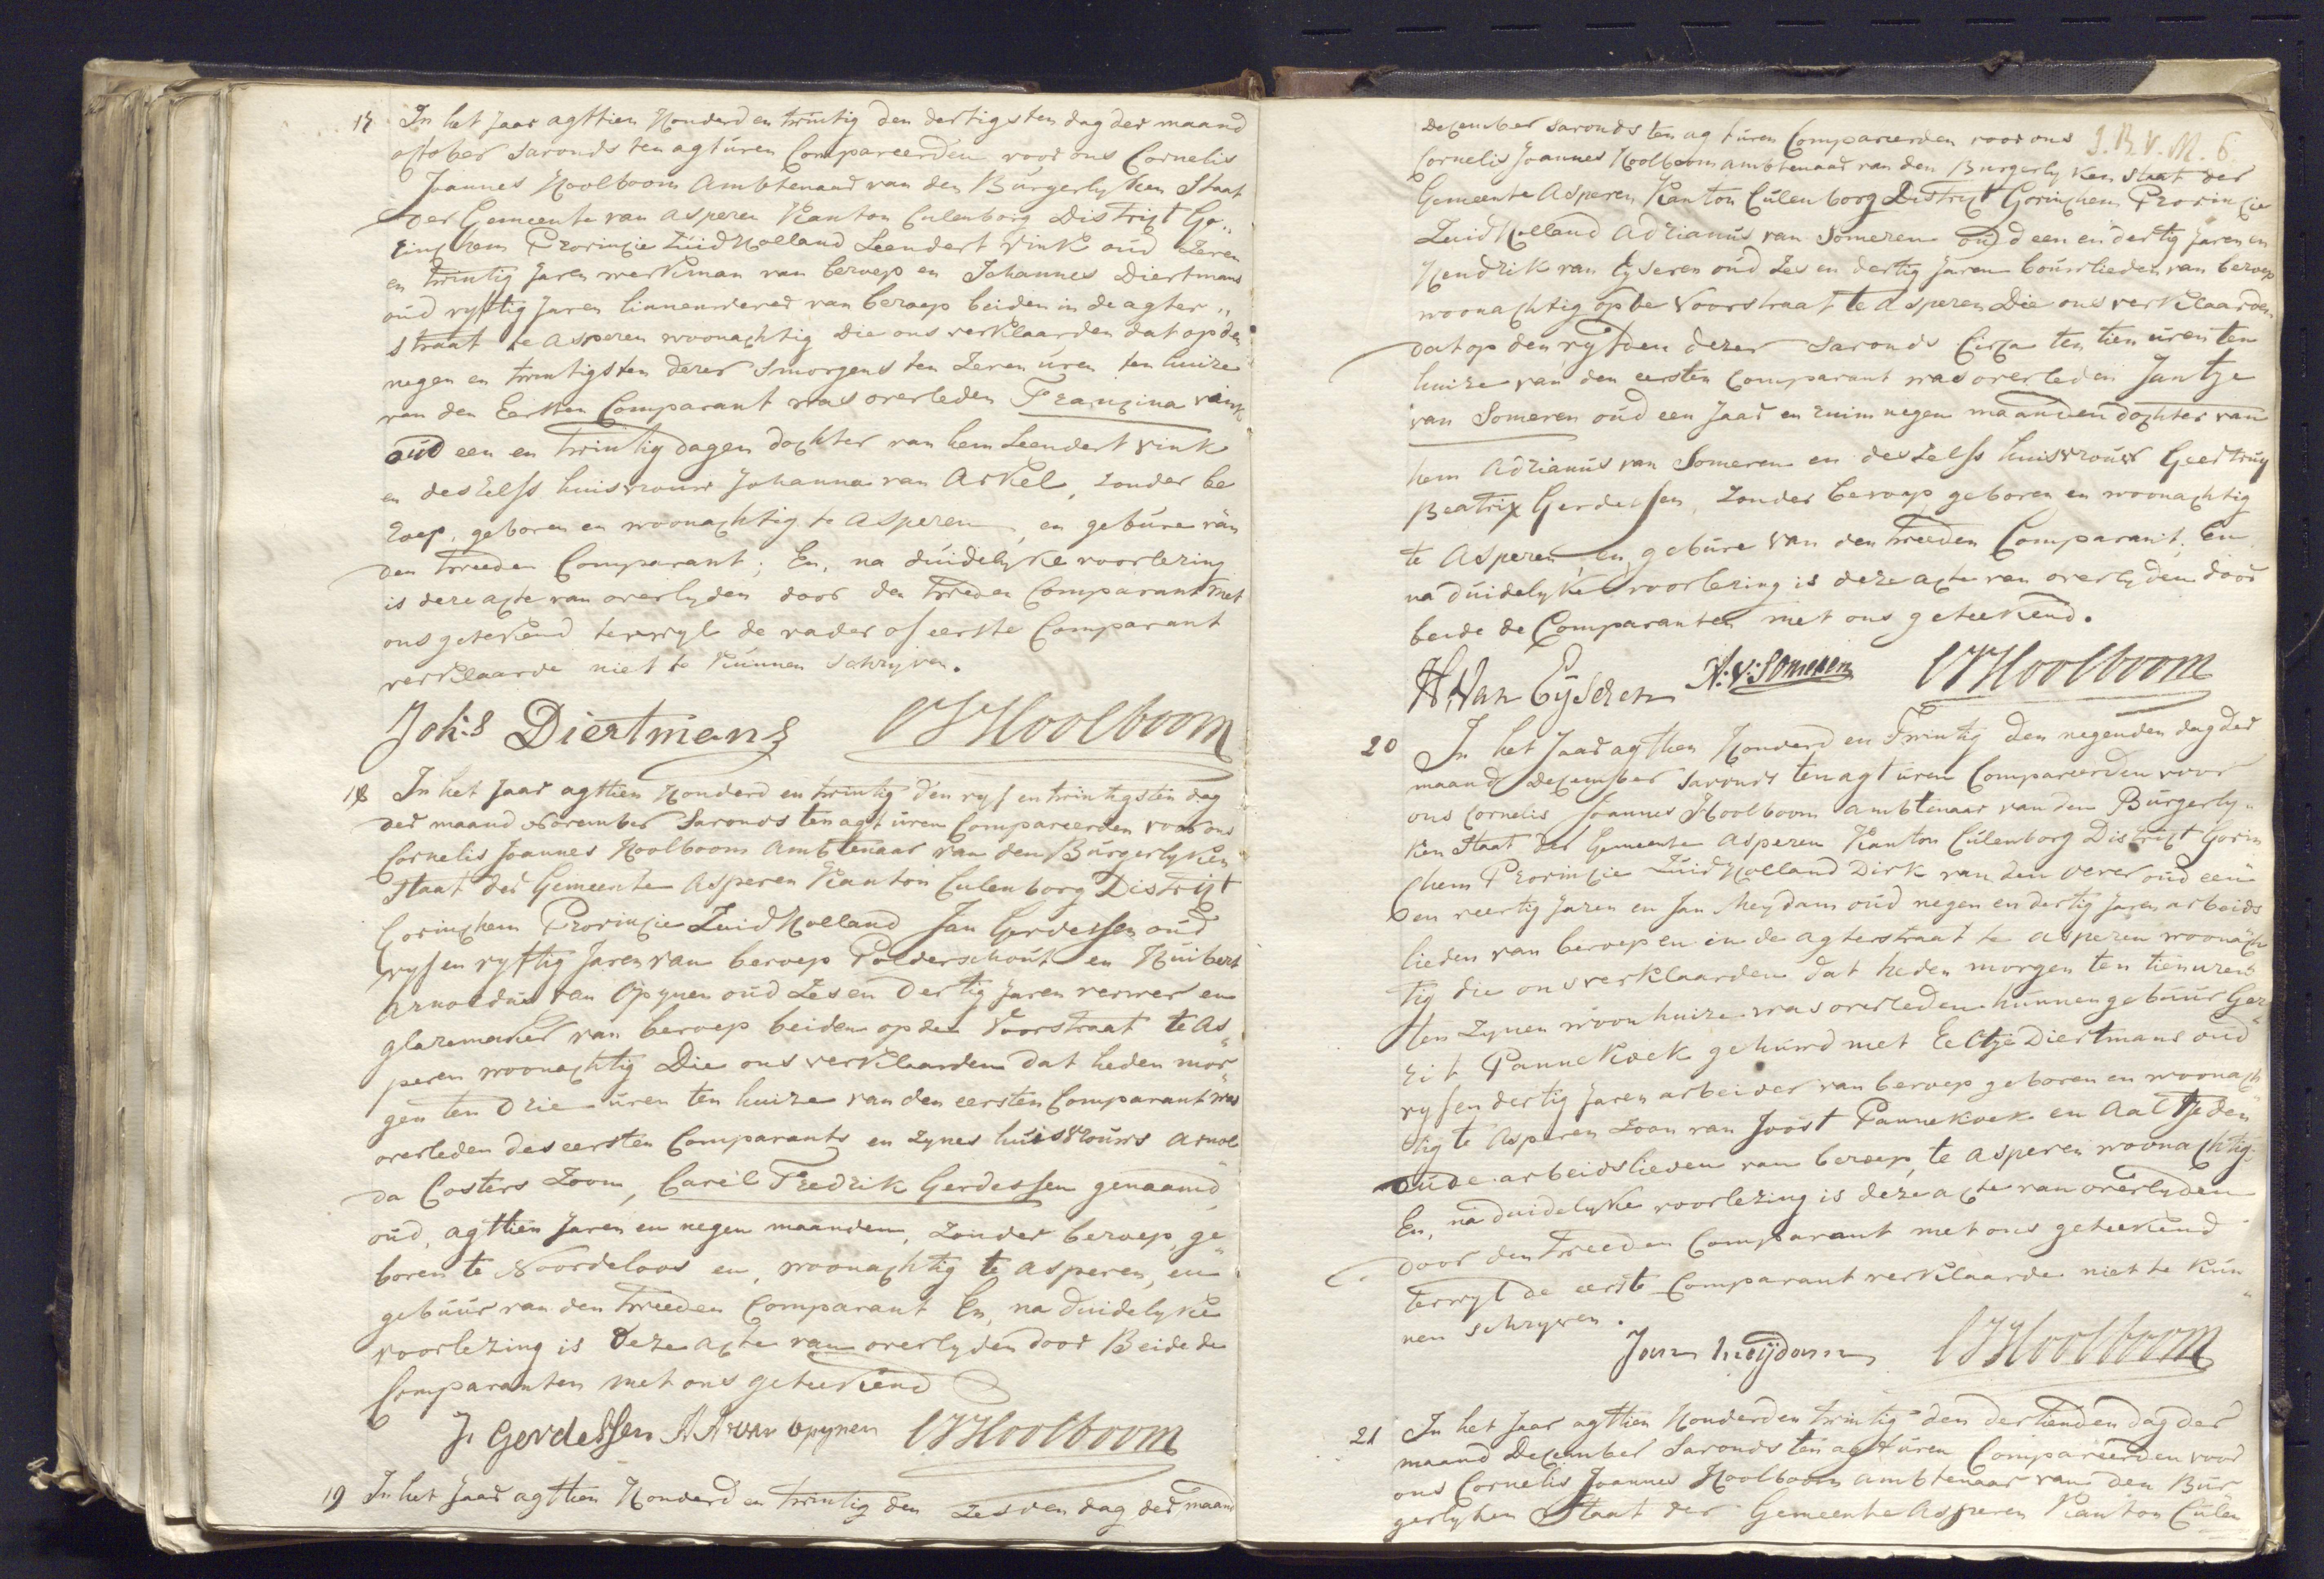 17 In het Jaar agttien Honderd en twintig den dertigsten dag der maand
october savonds ten agt uren Compareerden voor ons Cornelis
Joannes Hoolboom Ambtenaar van den Burgerlyken Staat
der Gemeente van Asperen Kanton Culenborg District Go„
rinchem Provincie Zuid Holland Leendert Vink oud zeven
en twintig Jaren werkman van beroep en Johannes Diertmans
oud vyftig Jaren linnenwever van beroep beiden in de agter„
straat te Asperen woonachtig Die ons verklaarden dat op den
negen en twintigsten dezer smorgens ten zeven uren ten huize
van den Eersten Comparant was overleden Francina Vink
oud een en twintig dagen dochter van hem Leendert Vink
en deszelfs huisvrouw Johanna van Arkel, zonder be
roep, geboren en woonachtig te Asperen, en gebure van
den tweeden Comparant; En, na duidelyke voorlezing
is deze acte van overlyden door den tweden Comparant met
ons getekend terwyl de vader of eerste Comparant
verklaarde niet te kunnen schryven.
Joh:s Diertmans CJHoolboom
18 In het Jaar agttien Honderd en twintig den vyf en twintigsten dag
der maand November Savonds ten agt uren Compareerden voor ons
Cornelis Joannes Hoolboom Ambtenaar van den Burgerlyken
Staat der Gemeente Asperen Kanton Culenborg District
Gorinchem Provincie Zuid Holland Jan Gerdessen oud
vyf en vyftig Jaren van beroep Polderschout en Huibert
Arnoldus van Opynen oud Zes en Dertig Jaren verwer en
glazemaker van beroep beiden op de Voorstraat te As„
peren woonachtig Die ons verklaarden dat heden mor„
gen ten Drie uren ten huize van den eersten Comparant was
overleden des eersten Comparants en zynes huisvrouws Arnol„
da Costers Zoon, Carel Fredrik Gerdessen genaamd,
oud, agttien Jaren en negen maanden, zonder beroep, ge„
boren te Noordeloos en, woonachtig te Asperen, en
gebuur van den tweeden Comparant En, na duidelyke
voorlezing is Deze acte van overlyden door Beide de
Comparanten met ons geteekend
J. Gerdessen H Ar van Opynen CJHoolboom
19 In het Jaar agttien Honderd en twintig den Zesden dag der maand
December savonds ten agt uren Compareerden voor ons J.B.V.M. 6
Cornelis Joannes Hoolboom ambtenaar van den Burgerlyken Staat der
Gemeente Asperen Kanton Culenborg District Gorinchem Provincie
Zuid Holland Adrianus van Someren oud een en dertig Jaren en
Hendrik van Eyseren oud Zes en dertig Jaren bouwlieden van beroep
woonachtig op de Voorstraat te Asperen Die ons verklaarden
dat op den vyfden dezer Savonds Circa ten tien uren ten
huize van den eersten Comparant was overleden Jantje
van Someren oud een Jaar en ruim negen maanden dochter van
hem Adrianus van Someren en deszelfs huisvrouw Geertruy
Beatrix Gerdessen, Zonder beroep geboren en woonachtig
te Asperen, en gebure van den tweeden Comparant; En
na duidelyke voorlezing is deze acte van overlyden door
beide de Comparanten met ons geteekend.
H. Van Eyseren A:V:Someren CJHoolboom
20 In het Jaar agttien Honderd en Twintig den negenden dag der
maand December Savonds ten agt uren Compareerden voor
ons Cornelis Joannes Hoolboom Ambtenaar van den Burgerly„
ken Staat der Gemeente Asperen Kanton Culenborg District Gorin
chem Provincie Zuid Holland Dirk van den Oever oud een
en veertig Jaren en Jan Meydam oud negen en dertig Jaren arbeids
lieden van beroep en in de agterstraat te Asperen woonach
tig die ons verklaarden dat heden morgen ten tien uren
ten Zynen woonhuize was overleden hunnen gebuur Ger„
rit Pannekoek gehuwd met Eeltje Diertmans oud
vyf en dertig Jaren arbeider van beroep geboren en woonach„
tig te Asperen Zoon van Joost Pannekoek en Aaltje den
Oude arbeidslieden van beroep, te Asperen woonachtig.
En, na duidelyke voorlezing is deze acte van overlyden
door den tweeden Comparant met ons geteekend
terwyl de eerste Comparant verklaarde niet te kun„
nen schryven.
Jan Meijdam CJHoolboom
21 In het Jaar agttien Honderd en twintig den dertienden dag der
maand December Savonds ten agt uren Compareerden voor
ons Cornelis Joannes Hoolboom ambtenaar van den Bur„
gerlyken Staat der Gemeente Asperen Kanton Culen